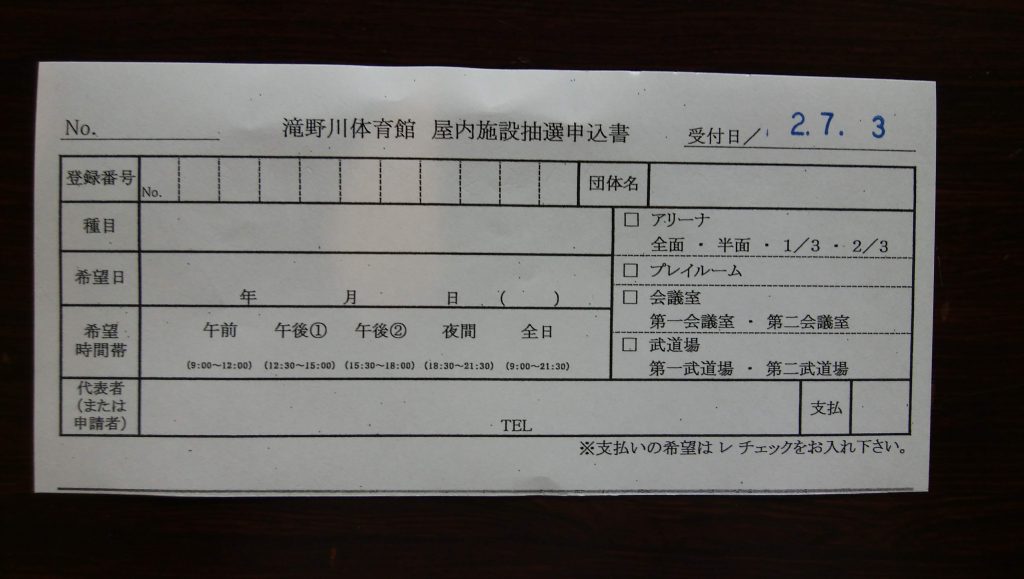 No. 滝野川体育館 屋内施設抽選申込書 受付日／ 2.7.3
登録番号 No. 団体名
種目
□ アリーナ
全面 ・ 半面 ・ 1／3 ・ 2／3
希望日 年 月 日 ( )
□ プレイルーム
□ 会議室
第一会議室 ・ 第二会議室
希望
時間帯
午前 午後① 午後② 夜間 全日
(9:00～12:00) (12:30～15:00) (15:30～18:00) (18:30～21:30) (9:00～21:30)
□ 武道場
第一武道場 ・ 第二武道場
代表者
(または
申請者)
TEL
支払
※支払いの希望は レ チェックをお入れ下さい。